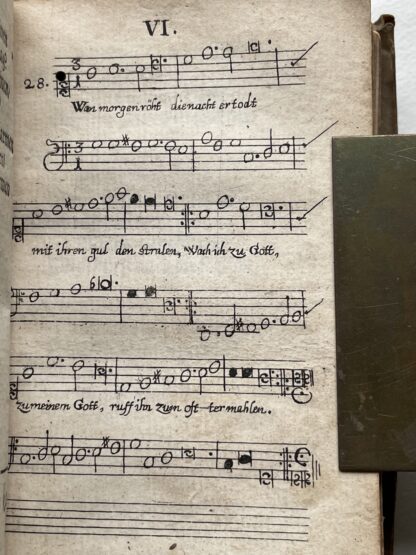 VI.
28.
Wan morgenröht die nacht ertodt
mit ihren gul den stralen, Wach ich zu Gott,
zu meinem Gott, ruff ihn zum oft termahlen.